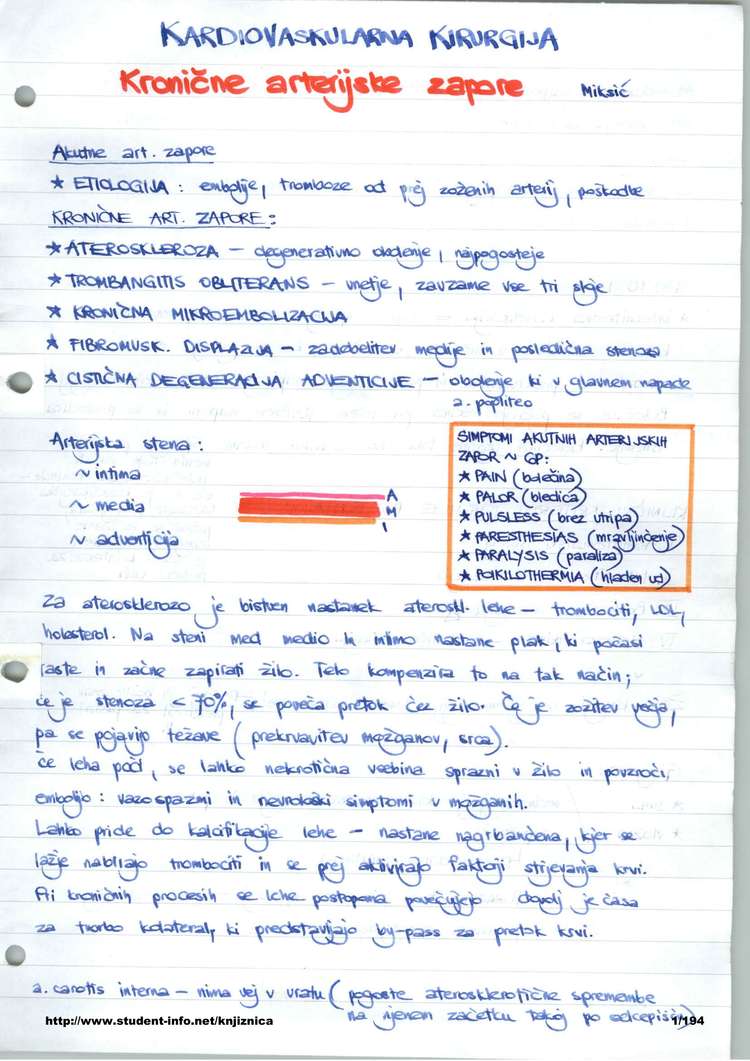 KARDIOVASKULARNA KIRURGIJA
Kronične arterijske zapore Miksić
Akutne art. zapore
* ETIOLOGIJA : embolije, tromboze od prej zoženih arterij, poškodbe
KRONIČNE ART. ZAPORE :
* ATEROSKLEROZA – degenerativno obolenje, najpogosteje
* TROMBANGITIS OBLITERANS – vnetje, zavzame vse tri sloje
* KRONIČNA MIKROEMBOLIZACIJA
* FIBROMUSK. DISPLAZIJA – zadebelitev medije in posledična stenoza
* CISTIČNA DEGENERACIJA ADVENTICIJE – obolenje ki v glavnem napade
a. popliteo
Arterijska stena :
~ intima
~ media
~ adventicija
A
M
I
SIMPTOMI AKUTNIH ARTERIJSKIH
ZAPOR ~ 6P:
* PAIN (bolečina)
* PALOR (bledica)
* PULSLESS (brez utripa)
* PARESTHESIAS (mravljinčenje)
* PARALYSIS (paraliza)
* POIKILOTHERMIA (hladen ud)
Za aterosklerozo je bistven nastanek ateroskl. lehe – trombociti, LDL,
holesterol. Na steni med medio in intimo nastane plak, ki počasi
raste in začne zapirati žilo. Telo kompenzira to na tak način;
če je stenoza < 70%, se poveča pretok čez žilo. Če je zožitev večja,
pa se pojavijo težave (prekrvavitev možganov, srca).
Če leha poči, se lahko nekrotična vsebina sprazni v žilo in povzroči
embolijo : vazospazmi in nevrološki simptomi v možganih.
Lahko pride do kalcifikacije lehe – nastane nagrbančena, kjer se
lažje nabirajo trombociti in se prej aktivirajo faktorji strjevanja krvi.
Pri kroničnih procesih se lehe postopoma povečujejo – dovolj je časa
za tvorbo kolateral, ki predstavljajo by-pass za pretok krvi.
a. carotis interna – nima vej v vratu (pogoste aterosklerotične spremembe
na njenem začetku takoj po odcepišču)
http://www.student-info.net/knjiznica 1/194